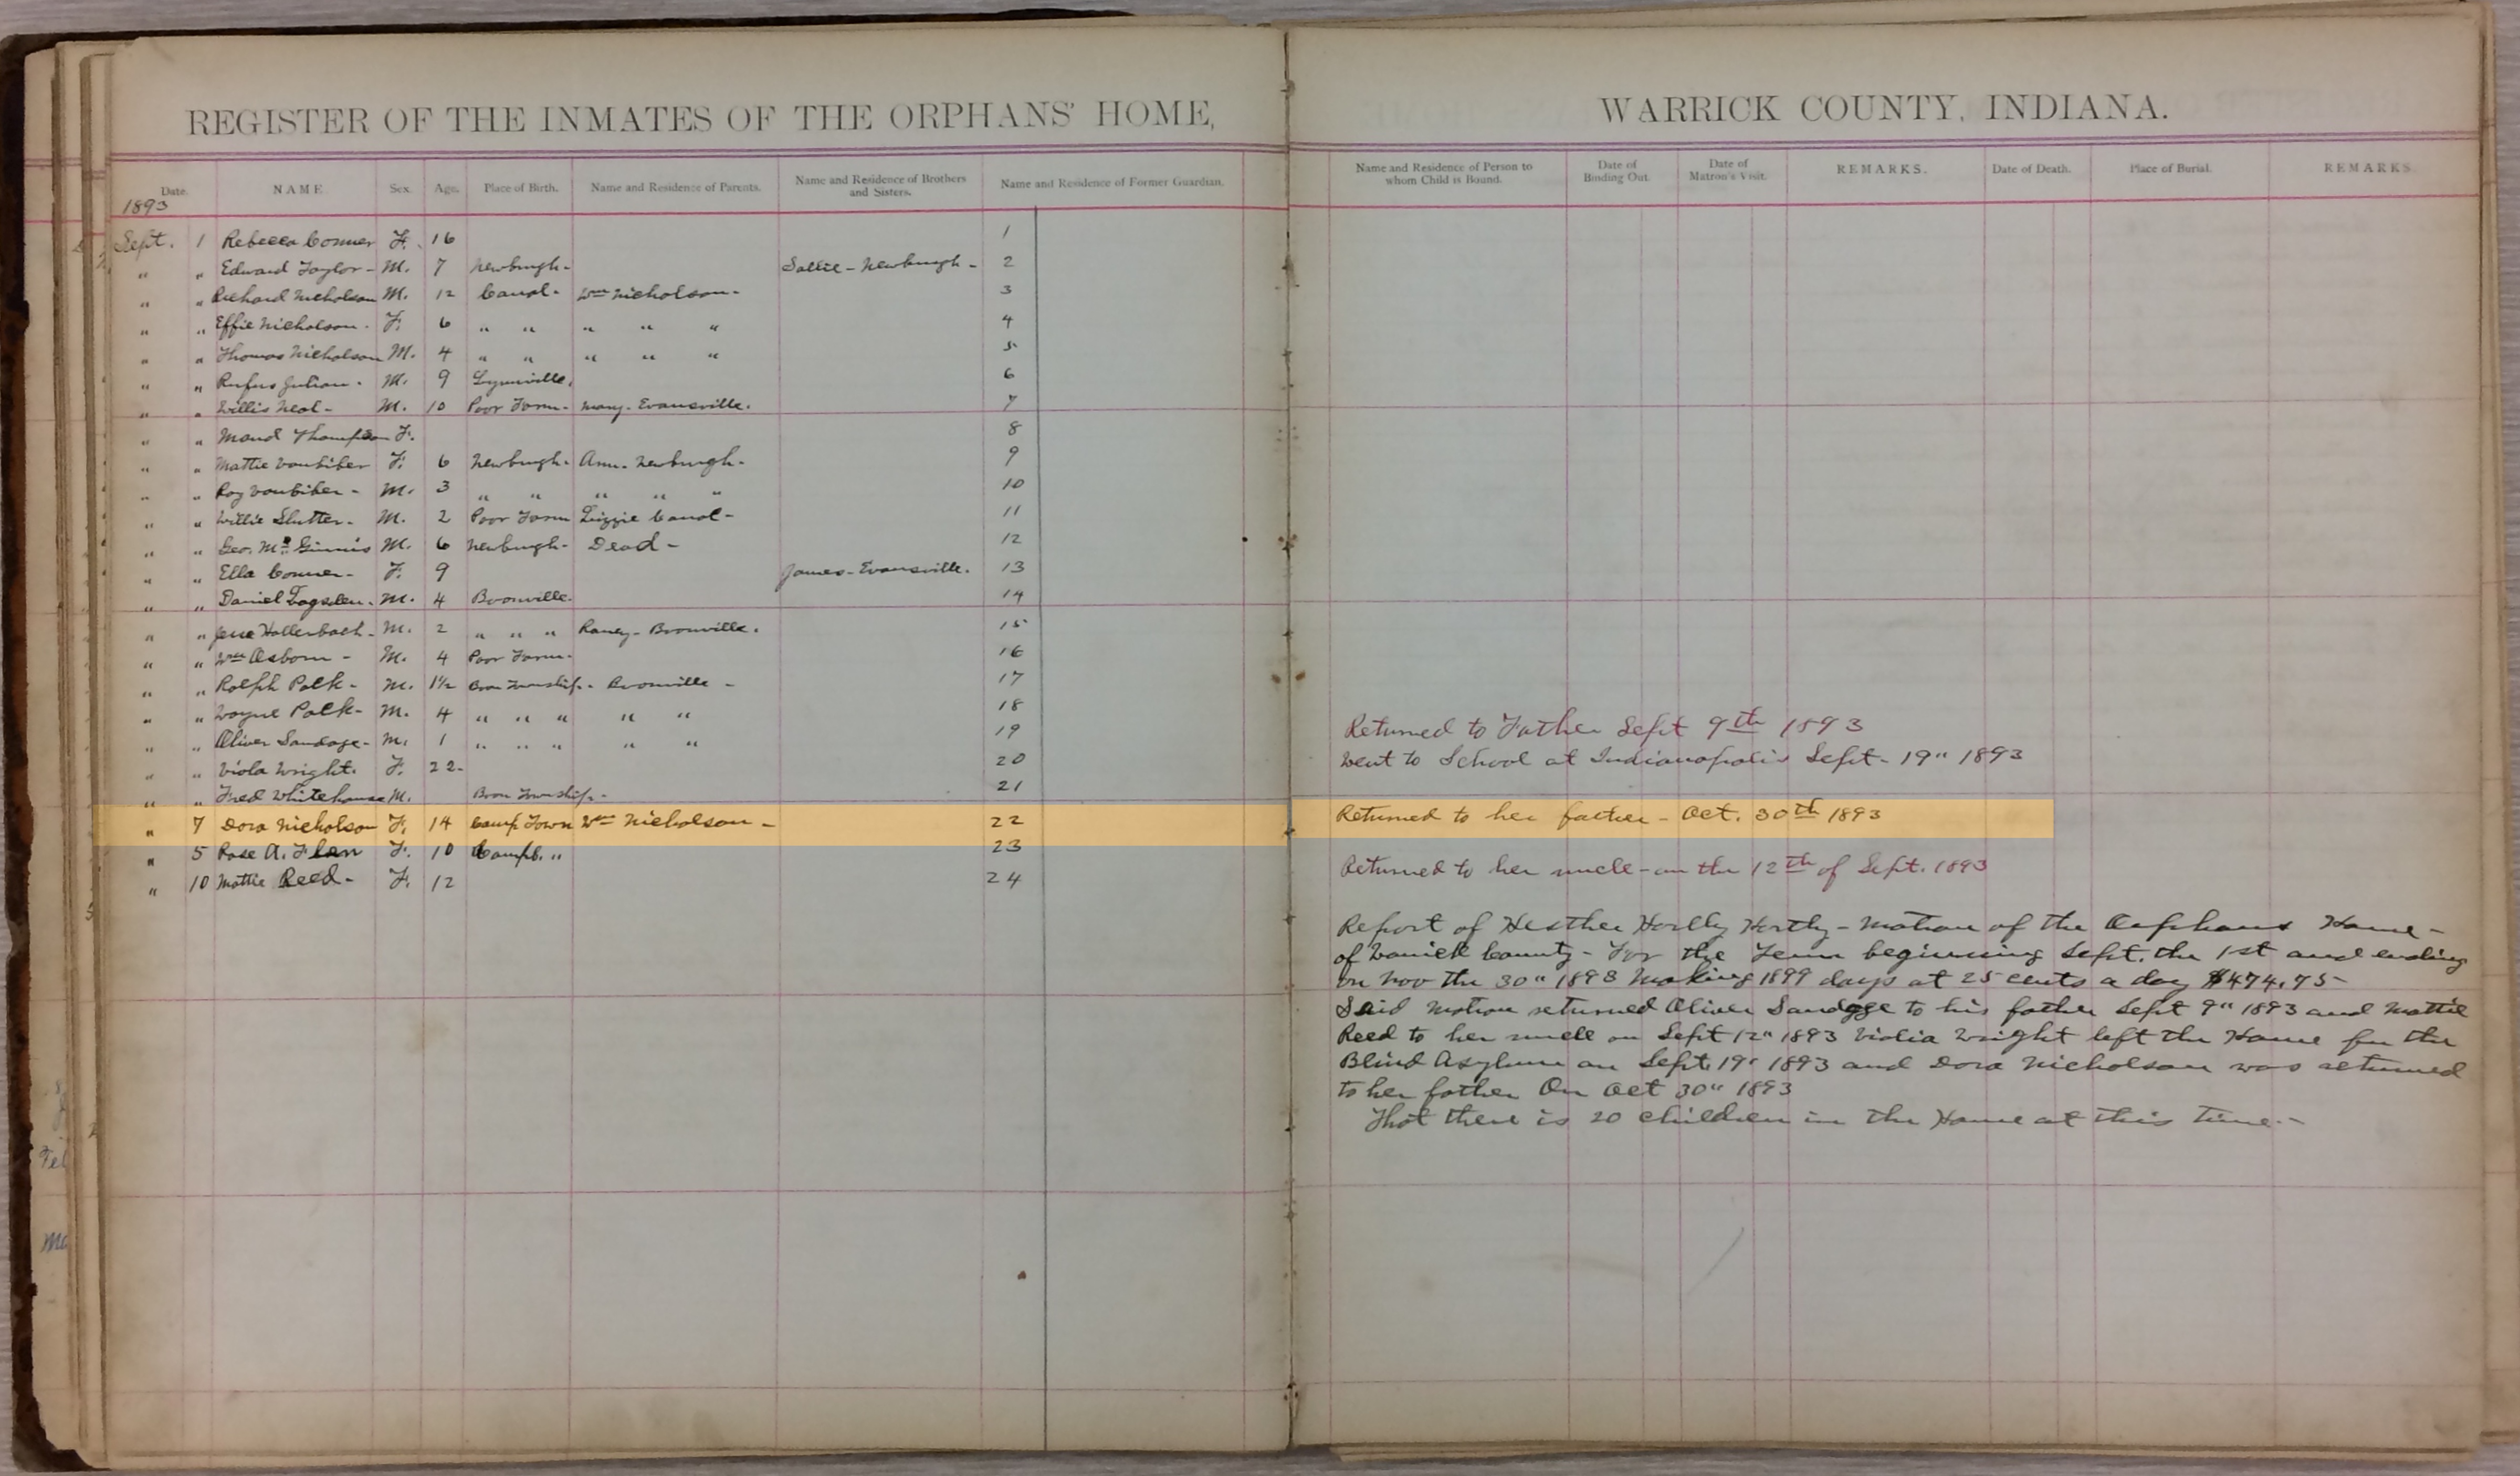 REGISTER OF THE INMATES OF THE ORPHANS' HOME,
Date. NAME. Sex. Age. Place of Birth. Name and Residence of Parents. Name and Residence of Brothers and Sisters. Name and Residence of Former Guardian.
1893
Sept. 1 Rebecca Conner F. 16 1
" " Edward Taylor - M. 7 Newburgh - Sallie - Newburgh - 2
" " Richard Nicholson M. 12 Canal - Wm Nicholson - 3
" " Effie Nicholson - F. 6 " " " " " 4
" " Thomas Nicholson M. 4 " " " " " 5
" " Rufus Julian - M. 9 Lynnville. 6
" " Willis Neal - M. 10 Poor Farm - Mary - Evansville. 7
" " Maud Thompson F. 8
" " Mattie Vanbiber F. 6 Newburgh - Ann - Newburgh - 9
" " Roy Vanbiber - M. 3 " " " " " 10
" " Willie Slutter - M. 2 Poor Farm Lizzie Canal - 11
" " Geo. Mc Ginnis M. 6 Newburgh - Dead - 12
" " Ella Conner - F. 9 James - Evansville. 13
" " Daniel M. 4 Boonville. 14
" " Jesse Hollerbach - M. 2 " " " Raney - Boonville. 15
" " Wm Osborn - M. 4 Poor Farm - 16
" " Ralph Polk - M. 1½ Boon Township - Boonville - 17
" " Wayne Polk - M. 4 " " " " " 18
" " Oliver Sandage - M. 1 " " " " " 19
" " Viola Wright. F. 22 - 20
" " Fred Whitehouse M. Boon Township - 21
" 7 Dora Nicholson F. 14 Camp Town Wm Nicholson - 22
" 5 Rose A. F. 10 Campb. " 23
" 10 Mattie Reed - F. 12 24
WARRICK COUNTY, INDIANA.
Name and Residence of Person to whom Child is Bound. Date of Binding Out. Date of Matron's Visit. REMARKS. Date of Death. Place of Burial. REMARKS.
Returned to Father Sept 9th 1893
Went to School at Indianapolis Sept - 19" 1893
Returned to her father - Oct. 30th 1893
Returned to her uncle - on the 12th of Sept. 1893
Report of Hesther - Matron of the Orphans Home -
of Warrick County - For the Term beginning Sept. the 1st and ending
on Nov the 30" 1893 Making 1899 days at 25 cents a day $474.75 -
Said Matron returned Oliver Sandage to his father Sept 9" 1893 and Mattie
Reed to her uncle on Sept 12" 1893 Violia Wright left the Home for the
Blind Asylum on Sept. 19" 1893 and Dora Nicholson was returned
to her father On Oct 30" 1893
That there is 20 children in the Home at this time. -